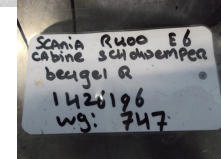 SCANIA R400 E6
CABINE SCHOKDEMPER
beugel R
1420196
wg: 747